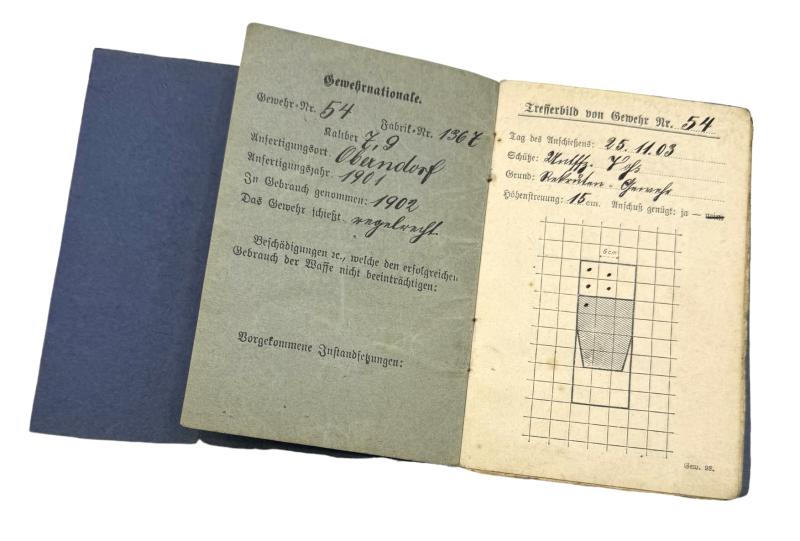 Gewehrnationale.
Gewehr-Nr. 54
Fabrik-Nr. 1367
Kaliber 7,9
Anfertigungsort Oberndorf
Anfertigungsjahr. 1901
In Gebrauch genommen: 1902
Das Gewehr schießt regelrecht
Beschädigungen ec., welche den erfolgreichen
Gebrauch der Waffe nicht beeinträchtigen:
Vorgekommene Instandsetzungen:
Trefferbild von Gewehr Nr. 54
Tag des Anschießens: 25.11.03
Schütze: Untffz.
Grund: Rekruten-Gewehr
Höhenstreuung: 15 cm. Anschuß genügt: ja – nein
6 cm
Gew. 98.